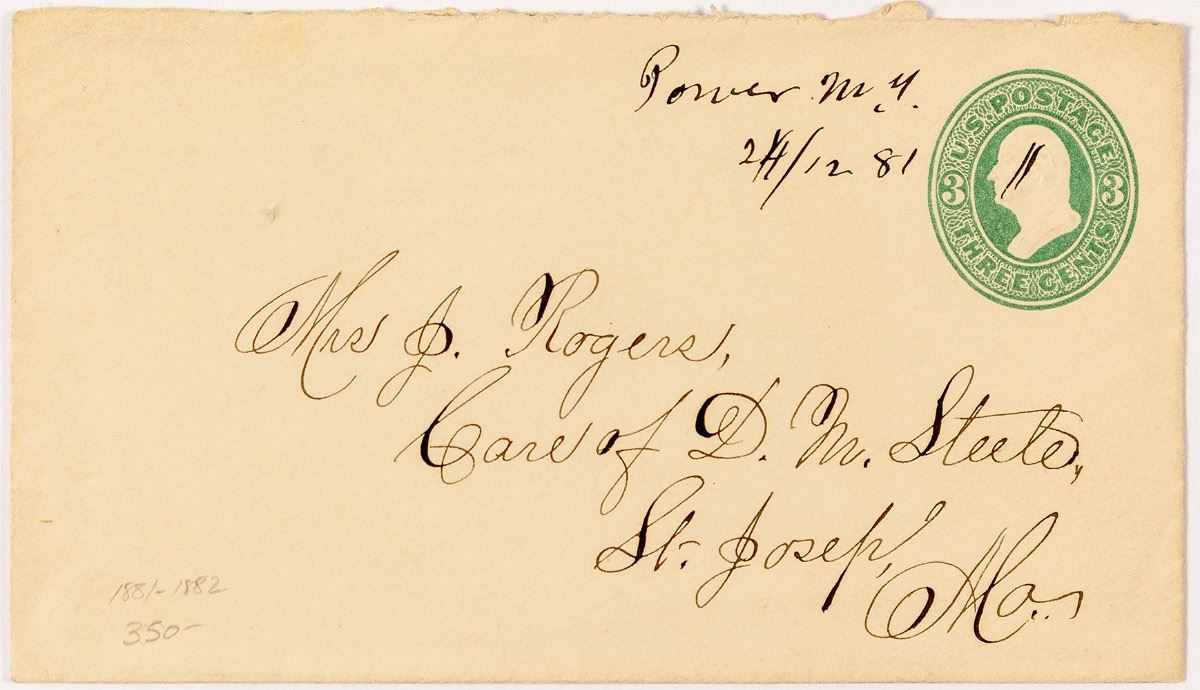 Power M.T.
24/12 81
U.S. POSTAGE
3 3
THREE CENTS
Mrs J. Rogers,
Care of D. M. Steele,
St. Joseph,
Mo.
1881-1882
350-